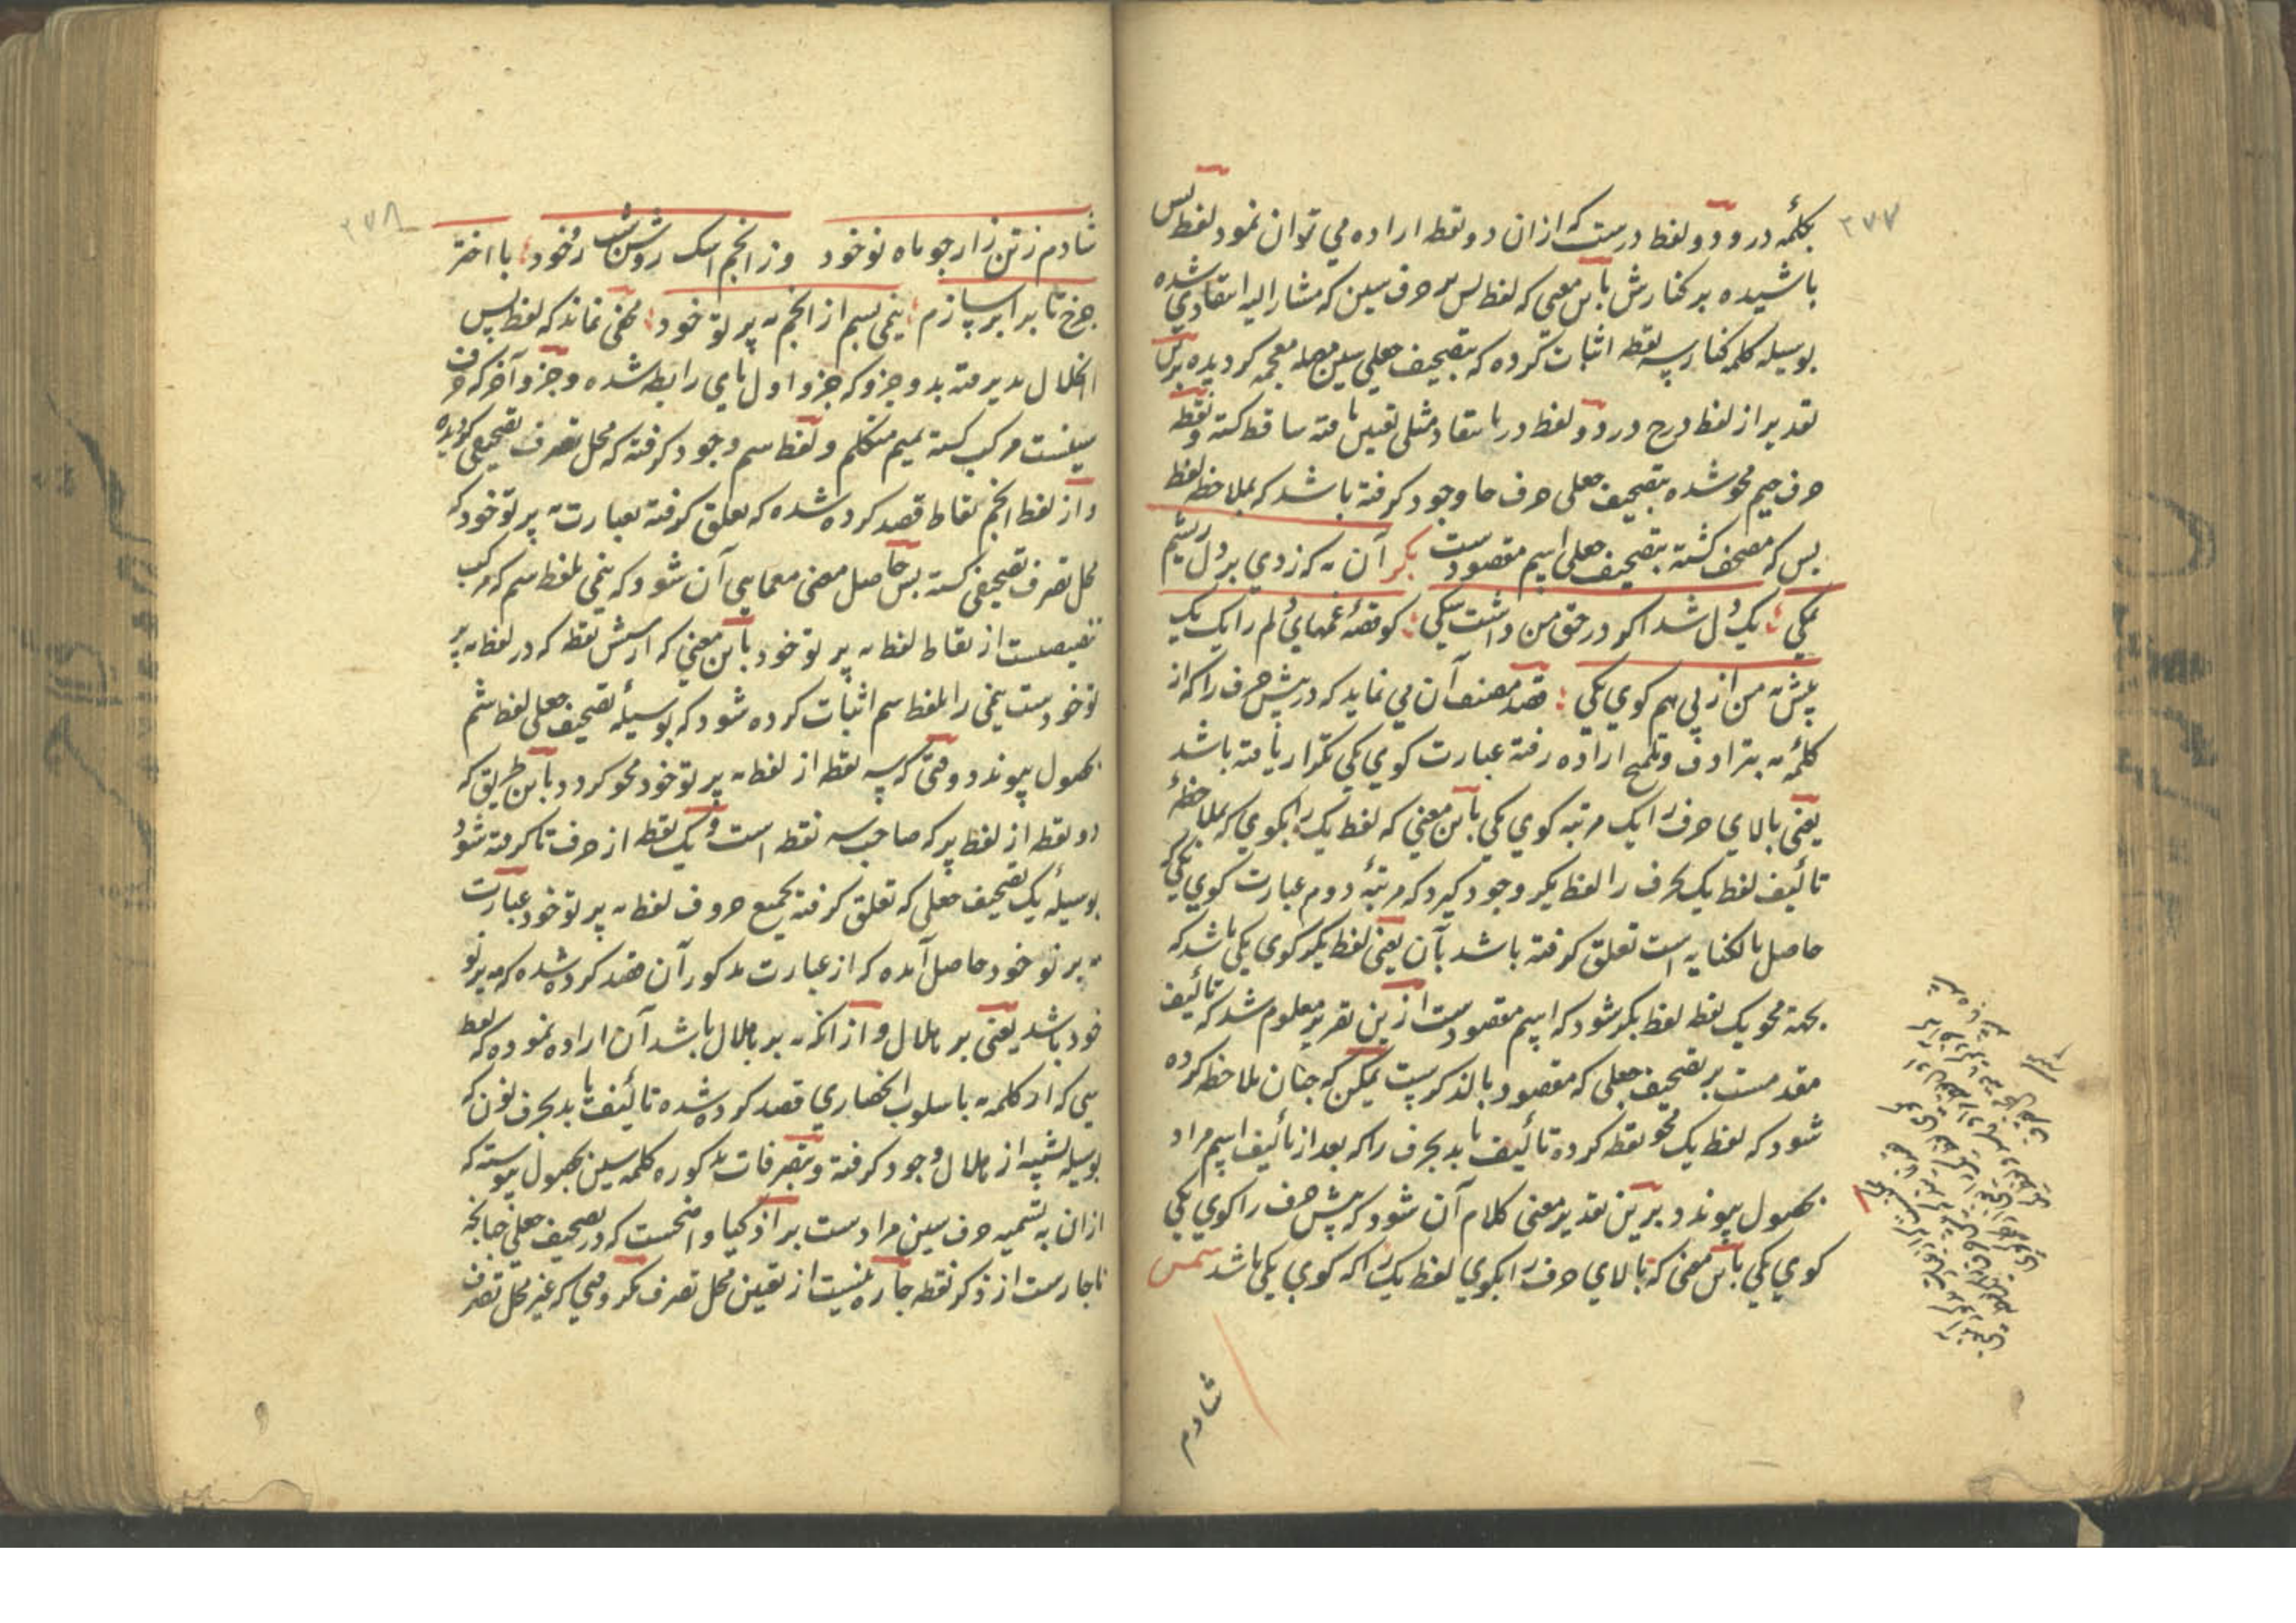 ۲۷۷
بکلمهٔ درو دو لفظ درست که ازان دو نقطه اراده می توان نمود لفظ بس
باشیده بر کنارش باین معنی که لفظ بس بر حرف سین که مشار الیه انتقادی شده
بوسیله کلمه کنار سه نقطه اثبات کرده که بتصحیف جعلی سین مهمله معجمه کردیده برین
تقدیر از لفظ درج درو دو لفظ در بانتقاد مثلی تعیین یافته ساقط کشته و نقطه
حرف جیم محو شده بتصحیف جعلی حرف حا وجود کرفته باشد که بملاحظه لفظ
بس که مصحف کشته بتصحیف جعلی اسیم مقصودست بکر آن به که زدی بر دل ریشم
نمکی یک دل شد اکو در حق من داشت شکی کو قصهٔ غمهای دلم را یک یک
پیش مه من از پی هم کوی یکی قصد مصنف آن می نماید که در پیش حرف را که از
کلمهٔ مه بترادف و تلمیح اراده رفته عبارت کوی یکی تکرار یافته باشد
یعنی بالای حرف را یک مرتبه کوی یکی باین معنی که لفظ یک را بکوی که بملاحظهٔ
تالیف لفظ یک بحرف را لفظ یکر وجود کیرد که مرتبهٔ دوم عبارت کوی یکی که
حاصل بالکنایه است تعلق کرفته باشد بآن یعنی لفظ یکر کوی یکی باشد که
بجهة محو یک نقطه لفظ بکر شود که اسیم مقصودست ازین تقریر معلوم شد که تالیف
مقدمست بر تصحیف جعلی که مقصود بالذکرست یمکن که چنان ملاحظه کرده
شود که لفظ یک محو نقطه کرده تالیف یابد بحرف را که بعد از تالیف اسیم مراد
بحصول پیوندد برین تقدیر معنی کلام آن شود که پیش حرف را کوی یکی
کوی یکی باین معنی که بالای حرف را بکوی لفظ یک را که کوی یکی باشد شمس
شادم
۲۷۸
شادم ز تن زار چو ماه نو خود وز انجم اشک روشن شب رو خود با اختر
چرخ تا برابر سازم نیمی بسیم از انجم مه پرتو خود مخفی نماند که لفظ بسیم
انحلال پذیرفته بدو جزو که جزو اول بای رابطه شده و جزو آخر که حرف
سینست مرکب کشته بمیم متکلم و لفظ سم وجود کرفته که محل تصرف تصحیفی کردیده
و از لفظ انجم نقاط قصد کرده شده که تعلق کرفته بعبارت مه پرتو خود که
محل تصرف تصحیفی کشته بس حاصل معنی معمایی آن شود که نیمی بلفظ سم که مرکب
تنصیصست از نقاط لفظ مه پرتو خود باین معنی که از شش نقطه که در لفظ مه پر
تو خودست نیمی را بلفظ سم اثبات کرده شود که بوسیلهٔ تصحیف جعلی لفظ شم
بحصول پیوندد وقتی که سه نقطه از لفظ مه پرتو خود محو کردد باین طریق که
دو نقطه از لفظ پر که صاحب سه نقطه است و یک نقطه از حرف تا کرفته شود
بوسیلهٔ یک تصحیف جعلی که تعلق کرفته بجمیع حروف لفظ مه پرتو خود عبارت
مه بر نو خود حاصل آمده که از عبارت مذکور آن قصد کرده شده که مه بر نو
خود باشد یعنی بر هلال و از انکه مه بر هلال باشد آن اراده نموده که لفظ
سی که از کلمه مه باسلوب انحصاری قصد کرده شده تالیف یابد بحرف نون که
بوسیله تشبیه از هلال وجود کرفته و بتصرفات مذکوره کلمه سین بحصول پیوسته که
ازان به تسمیه حرف سین مرادست بر اذکیا واضحست که در تصحیف جعلی چنانچه
ناچارست از ذکر نقطه چاره نیست از تعیین محل تصرف مکر وقتی که غیر محل تصرف